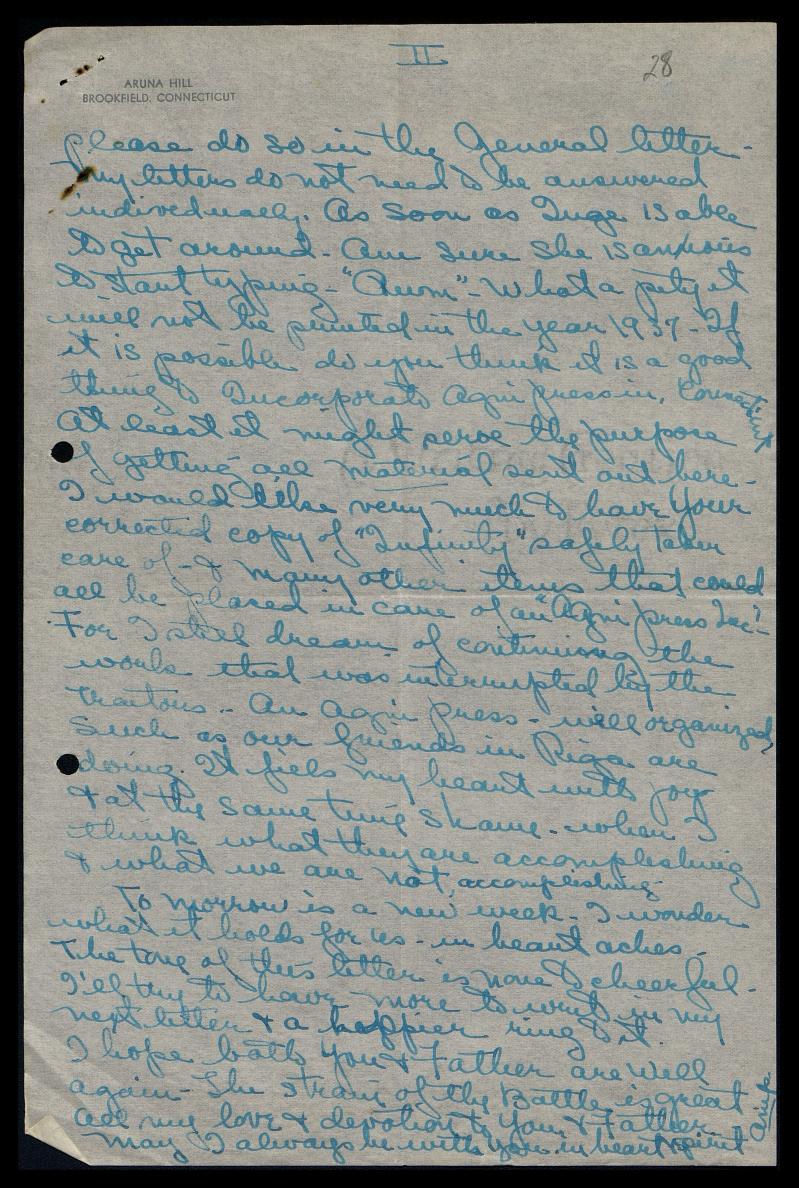 II
28
ARUNA HILL
BROOKFIELD, CONNECTICUT
please do so in the General letter -
My letters do not need to be answered
individually. As soon as Inge is able
to get around - Am sure she is anxious
to start typing - "Aum" - What a pity it
will not be printed in the year 1937 - If
it is possible do you think it is a good
thing to Incorporate Agni press in, Connecticut
At least it might serve the purpose
of getting all material sent out here -
I would like very much to have your
corrected copy of "Infinity" safely taken
care of - & many other items that could
all be placed in care of an "Agni press Inc" -
For I still dream of continuing the
work that was interrupted by the
traitors - An Agni press - well organized,
such as our friends in Riga are
doing. It fills my heart with joy
& at the same time shame - when I
think what they are accomplishing
& what we are not accomplishing -
To morrow is a new week - I wonder
what it holds for us - in heart aches -
The tone of this letter is none to cheerful -
I'll try to have more to write in my
next letter & a happier ring to it.
I hope both you & Father are well
again - The strain of the Battle is great
All my love & devotion to you & Father -
May I always be with you in heart & spirit